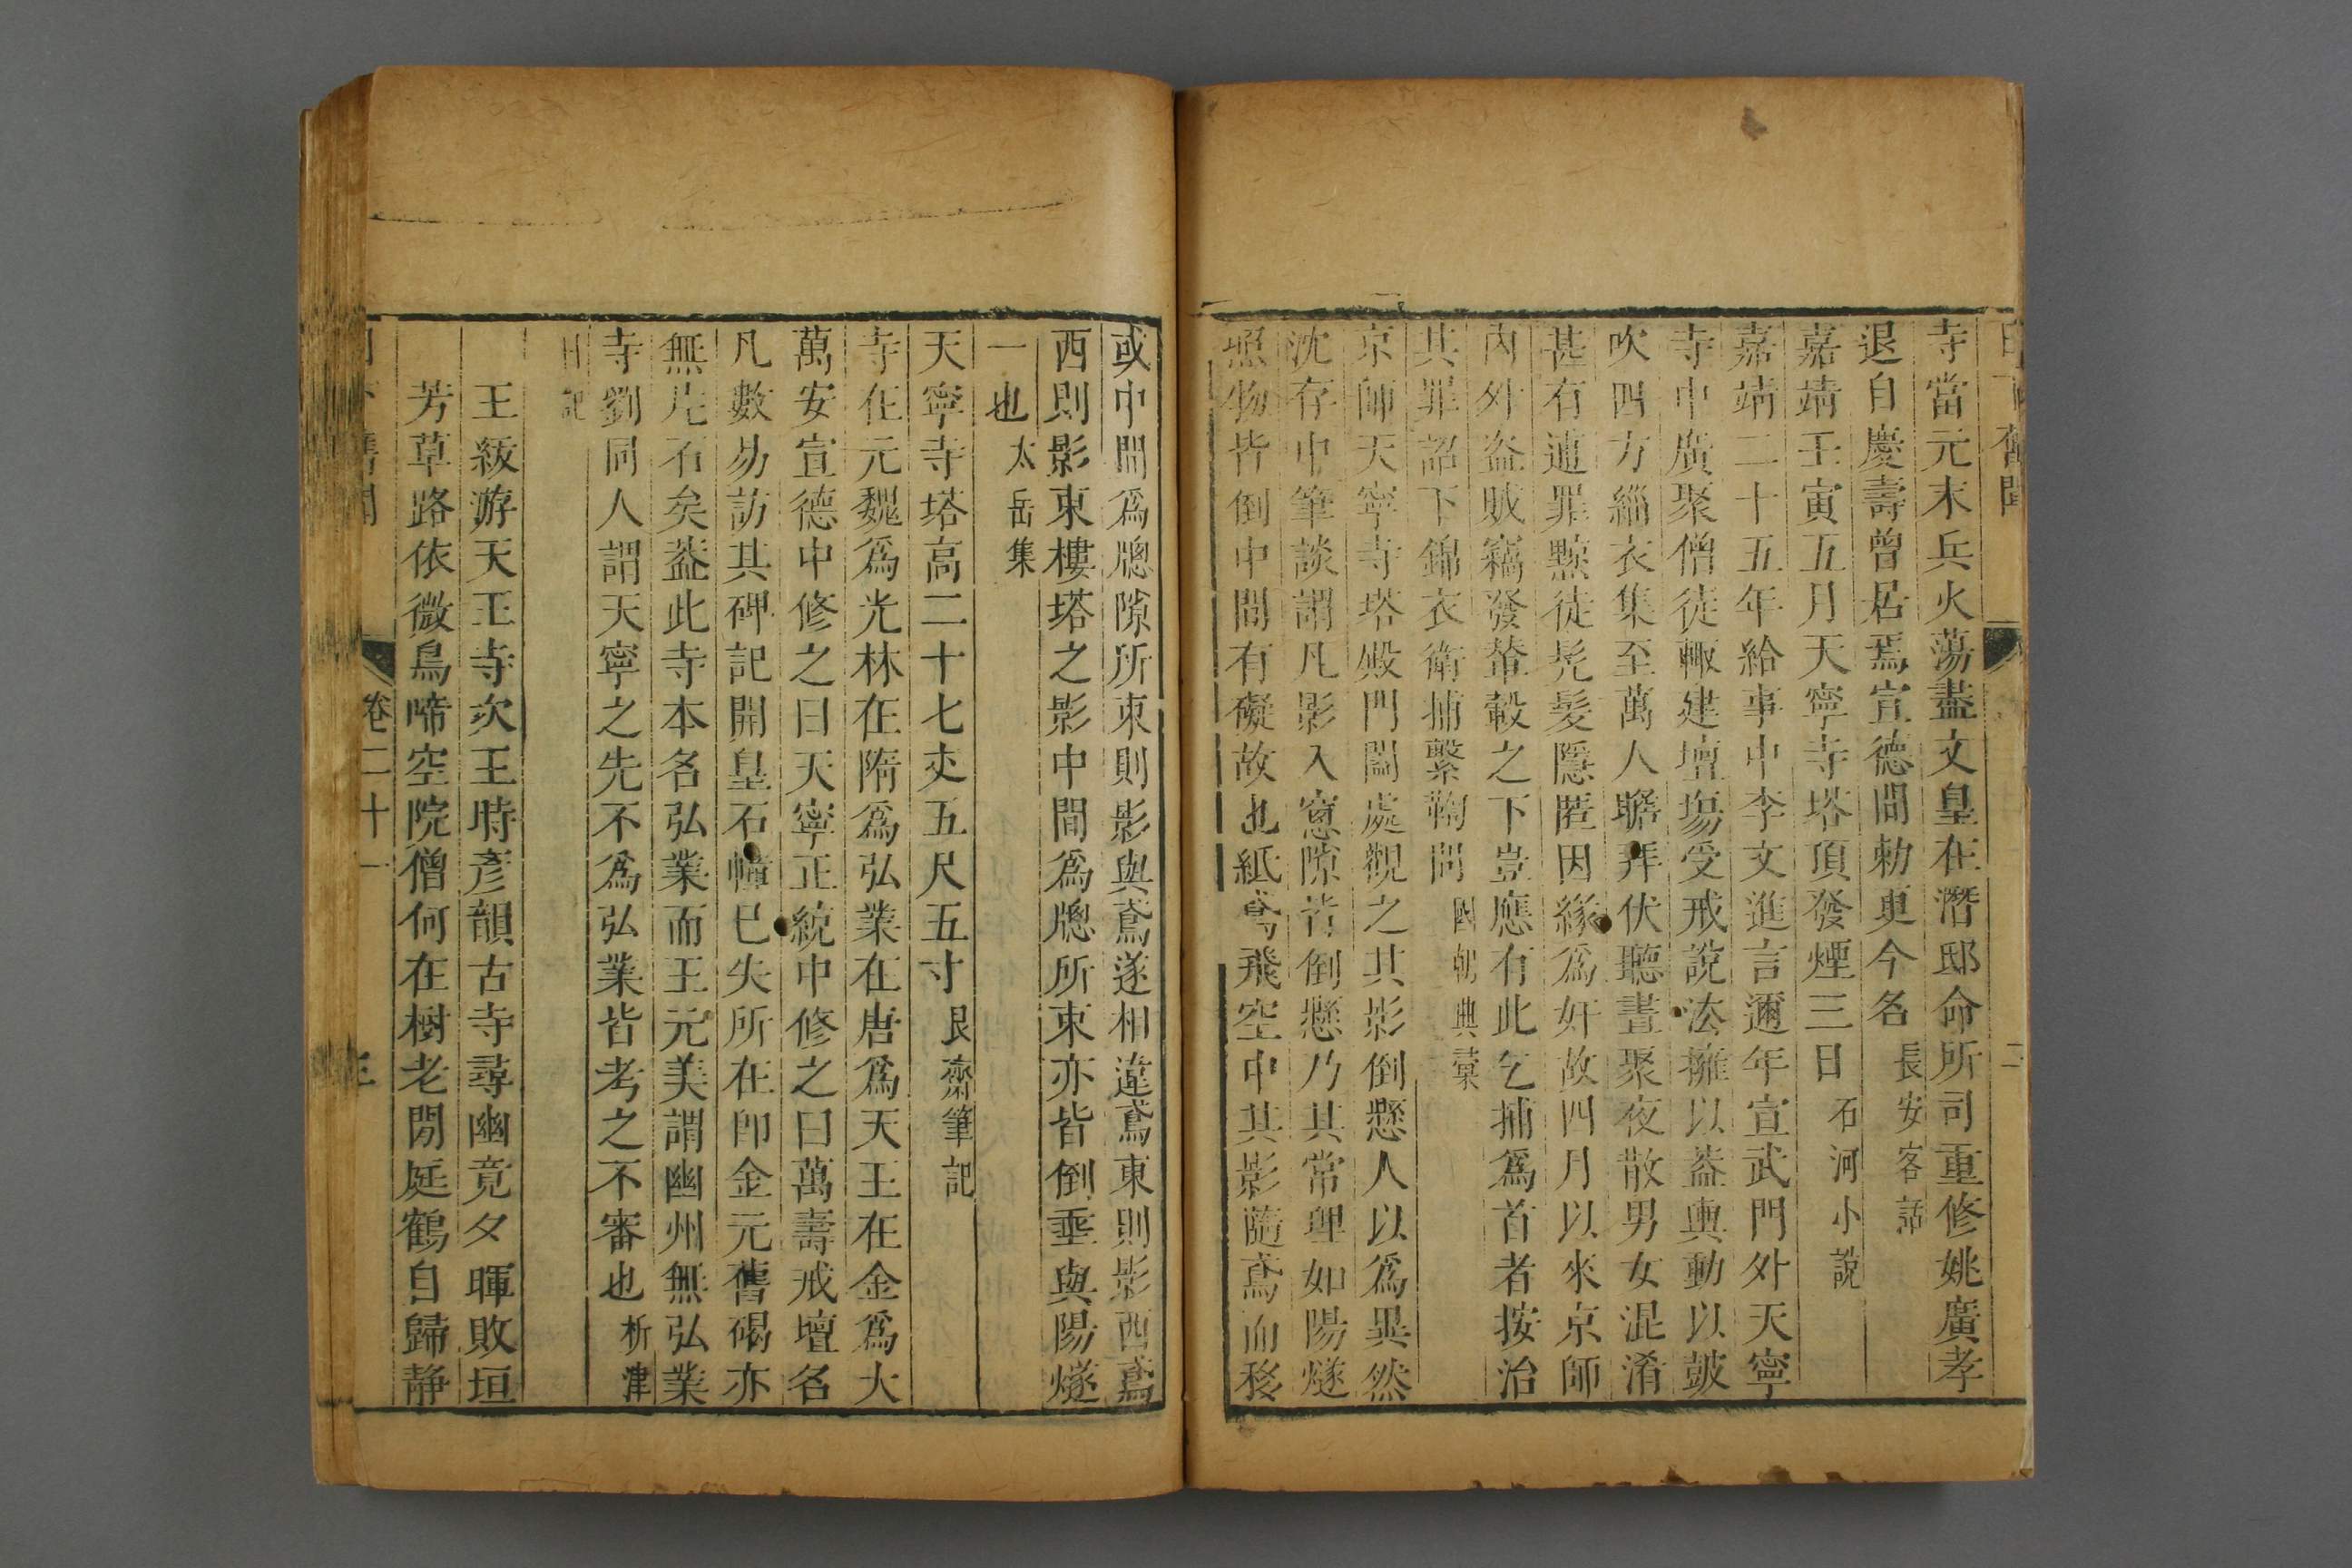 寺當元末兵火蕩盡文皇在潛邸命所司重修姚廣孝
退自慶壽曾居焉宣德間勅更今名長安客話
嘉靖壬寅五月天寧寺塔頂發煙三日石河小說
嘉靖二十五年給事中李文進言邇年宣武門外天寧
寺中廣聚僧徒輙建壇塲受戒說法擁以葢輿動以皷
吹四方緇衣集至萬人瞻拜伏聽晝聚夜散男女混淆
甚有逋罪黥徒髠髮隱匿因緣爲奸故四月以來京師
內外盗賊竊發輦轂之下豈應有此乞捕爲首者按治
其罪詔下錦衣衛捕繫鞫問國朝典彚
京師天寧寺塔殿門闔處觀之其影倒懸人以爲異然
沈存中筆談謂凡影入窻隙皆倒懸乃其常理如陽燧
照物皆倒中間有礙故也紙鳶飛空中其影隨鳶而移
或中間爲牕隙所束則影與鳶遂相違鳶東則影西鳶
西則影東樓塔之影中間爲牕所束亦皆倒垂與陽燧
一也太岳集
天寧寺塔高二十七丈五尺五寸艮齋筆記
寺在元魏爲光林在隋爲弘業在唐爲天王在金爲大
萬安宣德中修之曰天寧正統中修之曰萬壽戒壇名
凡數易訪其碑記開皇石幢已失所在卽金元舊碣亦
無片石矣葢此寺本名弘業而王元美謂幽州無弘業
寺劉同人謂天寧之先不爲弘業皆考之不審也析津
日記
王紱游天王寺次王時彥韻古寺尋幽竟夕暉敗垣
芳草路依微鳥啼空院僧何在樹老閒庭鶴自歸静
卷二十一
三